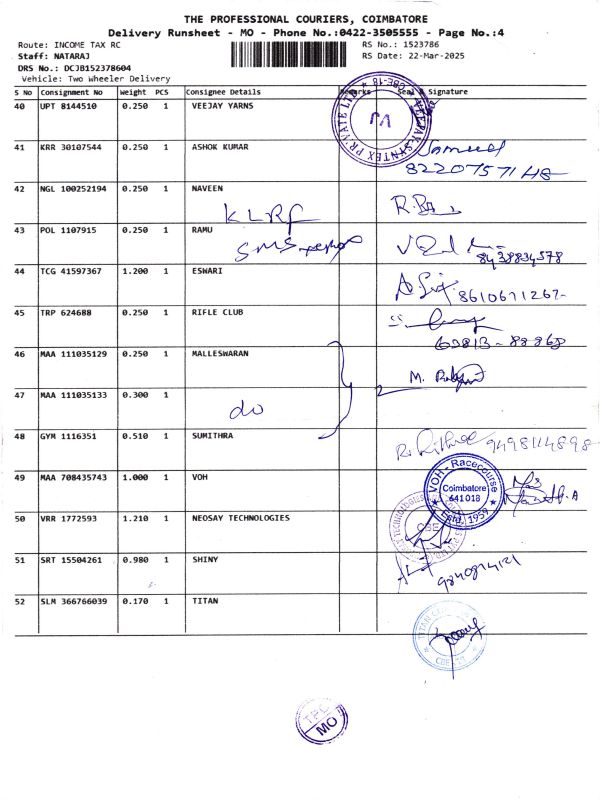 THE PROFESSIONAL COURIERS, COIMBATORE
Delivery Runsheet - MO - Phone No.:0422-3505555 - Page No.:4
Route: INCOME TAX RC RS No.: 1523786
Staff: NATARAJ RS Date: 22-Mar-2025
DRS No.: DCJB152378604
Vehicle: Two Wheeler Delivery
S No Consignment No Weight PCS Consignee Details Remarks Seal & Signature
40 UPT 8144510 0.250 1 VEEJAY YARNS
41 KRR 30107544 0.250 1 ASHOK KUMAR Samuel
8220757148
42 NGL 100252194 0.250 1 NAVEEN
KLRF
43 POL 1107915 0.250 1 RAMU
SMS
8438834578
44 TCG 41597367 1.200 1 ESWARI
8610671267
45 TRP 624688 0.250 1 RIFLE CLUB
63813-88868
46 MAA 111035129 0.250 1 MALLESWARAN
M.
47 MAA 111035133 0.300 1
do
48 GYM 1116351 0.510 1 SUMITHRA
9498114898
49 MAA 708435743 1.000 1 VOH
VOH - Racecourse
Coimbatore
641 018
Estd. 1959
50 VRR 1772593 1.210 1 NEOSAY TECHNOLOGIES
CBE
51 SRT 15504261 0.980 1 SHINY
9840814121
52 SLM 366766039 0.170 1 TITAN
TPC
MO